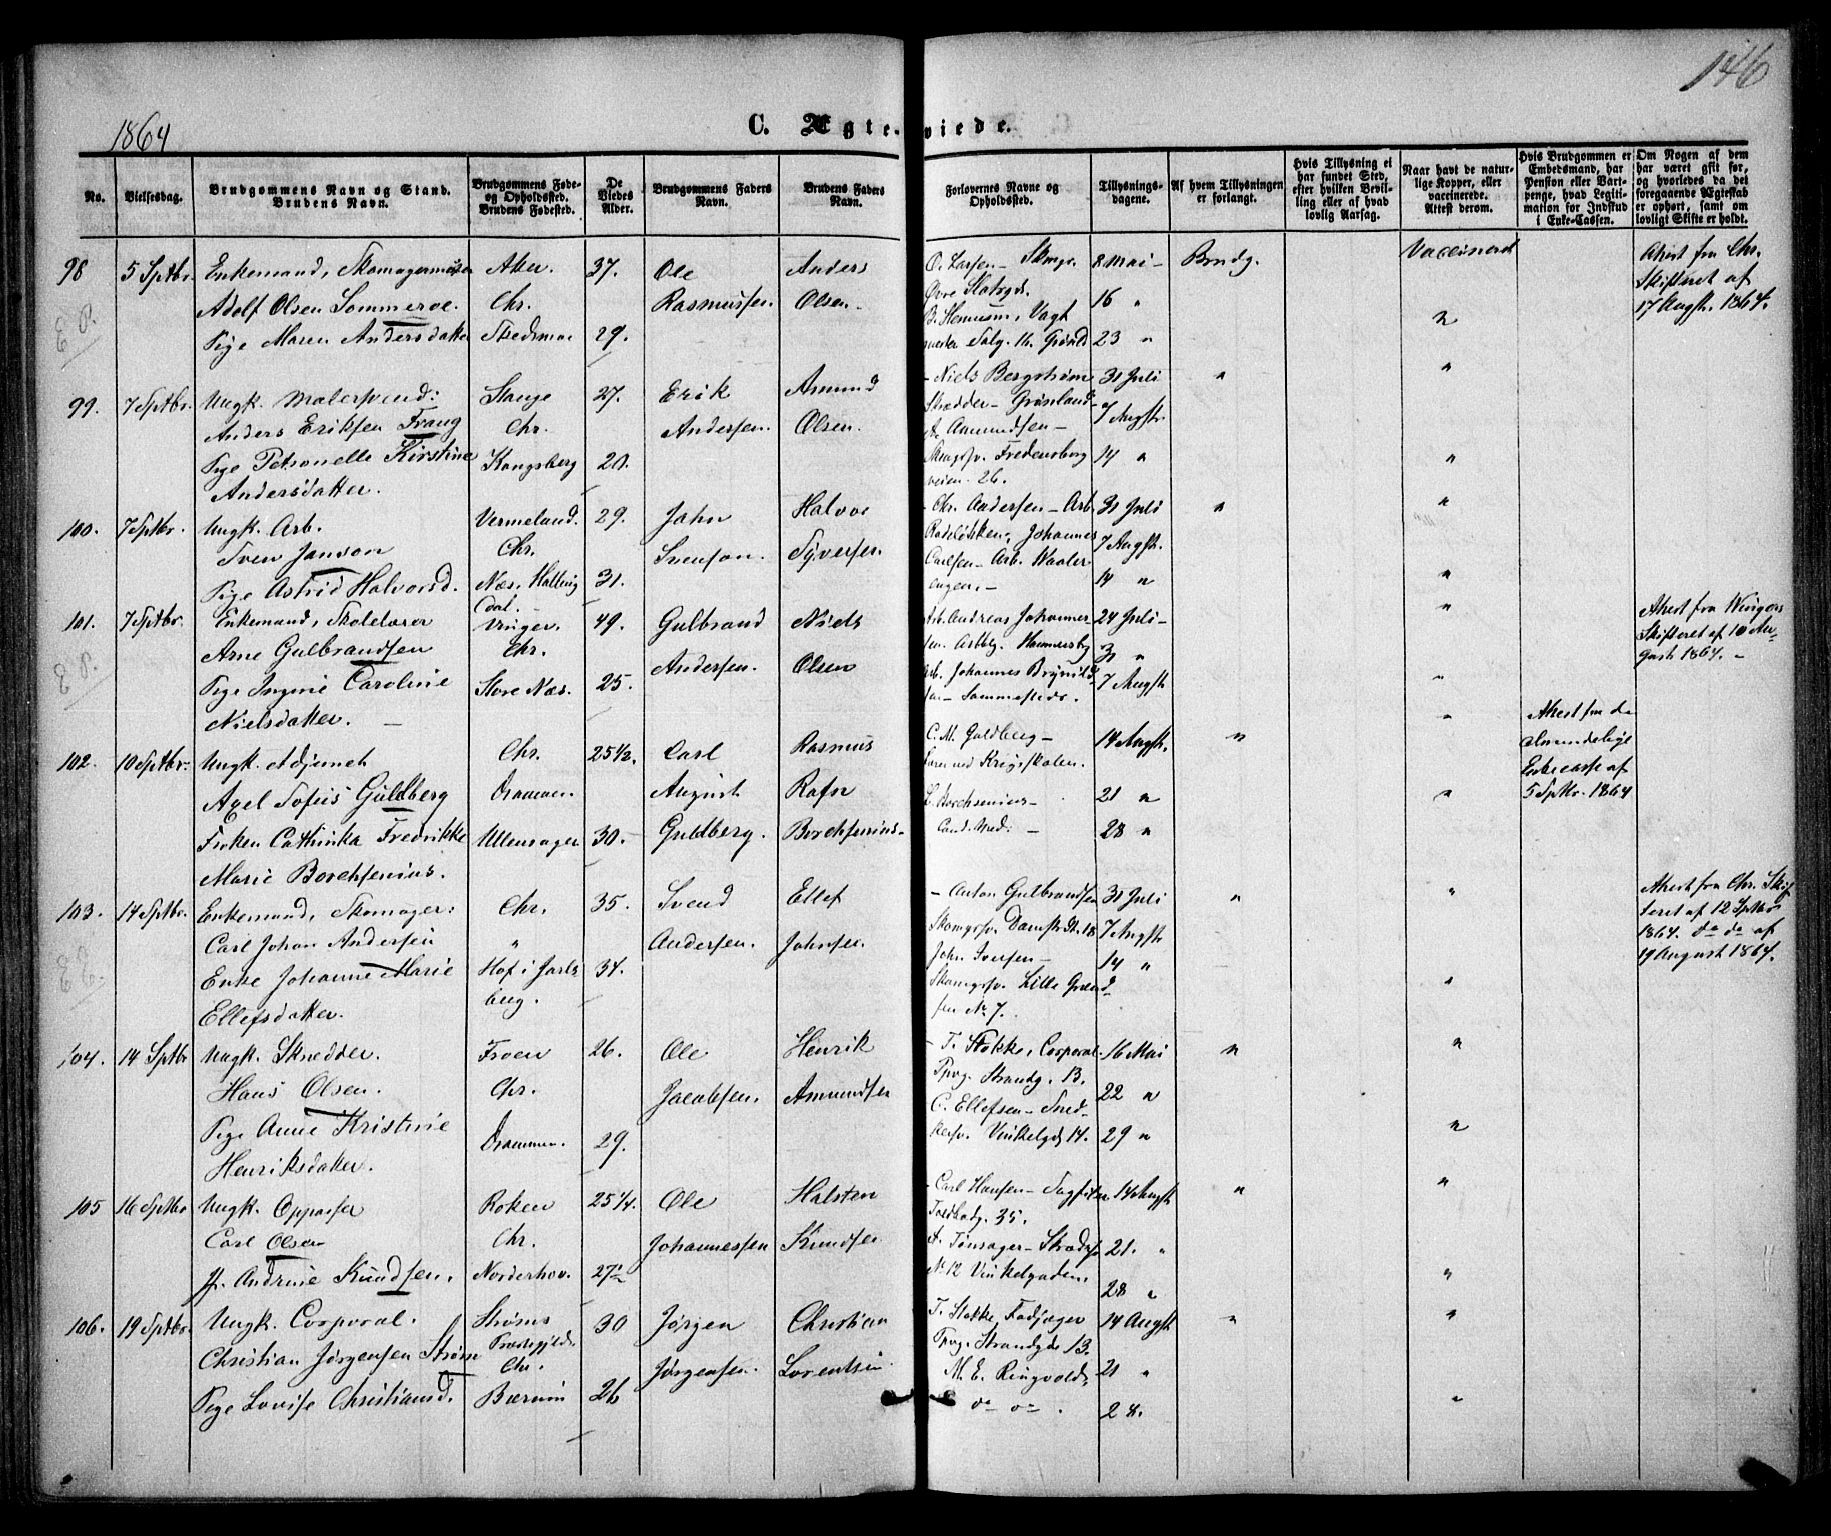 146
1864
C. Ægteviede.
No.
Vielsesdag.
Brudgommens Navn og Stand.
Brudens Navn.
Brudgommens Føde-
og Opholdssted.
Brudens Fødested.
De
Viedes
Alder.
Brudgommens Faders
Navn.
Brudens Faders
Navn.
Forlovernes Navne og
Opholdssted.
Tillysnings-
dagene.
Af hvem Tillysningen
er forlangt.
Hvis Tillysning ei
har fundet Sted,
efter hvilken Bevil-
ling eller af hvad
lovlig Aarsag.
Naar havt de natur-
lige Kopper, eller
vaccinerede.
Attest derom.
Hvis Brudgommen er
Embedsmand, har
Pension eller Vart-
penge, hvad Legiti-
mation for Indskud
i Enke-Cassen.
Om Nogen af dem
har været gift før,
og hvorledes da det
foregaaende Ægteskab
er ophørt, samt om
lovligt Skifte er holdt.
98 5 Sptbr. Enkemand, Skomagermester Aker. 37. Ole Anders
Adolf Olsen Sommeroe. Chr. Rasmussen Olsen
Pige Maren Andersdatter Skedsmoe 29.
O. Larsen - Skomgr. 8 Mai - Brudg. Vaccineret
Øvre Slotsgd. 16 "
23 "
Attest fra Chr.
Skifteret af
17 Augst. 1864.
99. 7 Sptbr. Ungk. Malersvend: Stange 27. Erik Amund
Anders Eriksen Frang Chr. Andersen. Olsen.
Pige Petronelle Kirstine Kongsberg 20.
Andersdatter.
- Niels Bergstrøm 31 Juli "
Skrædder - Grønland 7 Augst.
Amundsen -
Skomgsv. Fredensborg 14 "
veien 26.
100. 7 Sptbr. Ungk. Arb. Vermeland. 29. John Halvor
Sven Janson Chr. Svenson. Syversen
Pige Astrid Halvorsd. Næs. Halling 31.
dal.
- Chr. Andersen - Arb. 31 Juli "
Rodeløkken, Johannes 7 Augst.
Carlsen - Arb. Waaler 14 "
engen. -
101. 7 Sptbr. Enkemand, Skolelærer Vinger. 49. Gulbrand Niels
Arne Gulbrandsen Chr. Andersen. Olsen
Pige Ingine Caroline Store Næs. 25.
Nielsdatter. -
Arb. Andreas Johannes 24 Juli -
sen. Hammersbg 31 "
Arb. Johannes Brynild 7 Augst
sen - Sammesteds.
Attest fra Vingers
Skifteret af 10 Au-
gust 1864. -
102. 10 Sptbr. Ungk. Adjunct Chr. 25 1/2. Carl Rasmus
Axel Sofus Guldberg Drammen. August Rafn
Frøken Cathinka Fredrikke Ullensager 30 - Guldberg. Borchsenius -
Marie Borchsenius.
C. M. Guldberg - 14 Augst. "
Lærer ved Krigsskolen.
Borchsenius - 21 "
Cand. Med. - 28 "
Attest fra den
almindelige
Enkecasse af
5 Sptbr. 1864
103. 14 Sptbr. Enkemand, Skomager: Chr. 35. Svend Ellef
Carl Johan Andersen " Andersen. Johnsen
Enke Johanne Marie Hof i Jarls 34.
Ellefsdatter. berg.
- Anton Gulbrandsen 31 Juli "
Skomgsv. Damstr. 18 7 Augst
John Iversen - 14 "
Skomgsv. Lille Grænd
sen No 7.
Attest fra Chr. Skif
teret af 12 Sptbr
1864. do do af
19 August 1864.
104. 14 Sptbr Ungk. Snedker. Froen 26. Ole Henrik
Hans Olsen. Chr. Jacobsen. Amundsen
Pige Anne Kristine Drammen. 29.
Henriksdatter.
- T. Stokke, Corporal. 16 Mai "
Strandg. 13. 22 "
C. Ellefsen - Sned-
kersv. Vinkelgd 14. 29 "
105 16 Sptbr Ungk. Oppasser Roken 25 1/4. Ole Halsten
Carl Olsen Chr. Johannessen Knudsen
P. Andrine Knudsen. Norderhov. 27 1/2
- Carl Hansen - 14 Augst "
35.
Tønsager - 21. "
No 12 Vinkelgaden. 28 "
106. 19 Sptbr. Ungk. Corporal. Strøms 30 Jørgen Christian
Christian Jørgensen Strøm Præstegjeld Chr. Jørgensen. Lorentsen
Pige Lovise Christiansd. Bærum 26
T. Stokke 14 Augst "
Strandgd 13.
M. E. Ringvold 21 "
do do. 28.